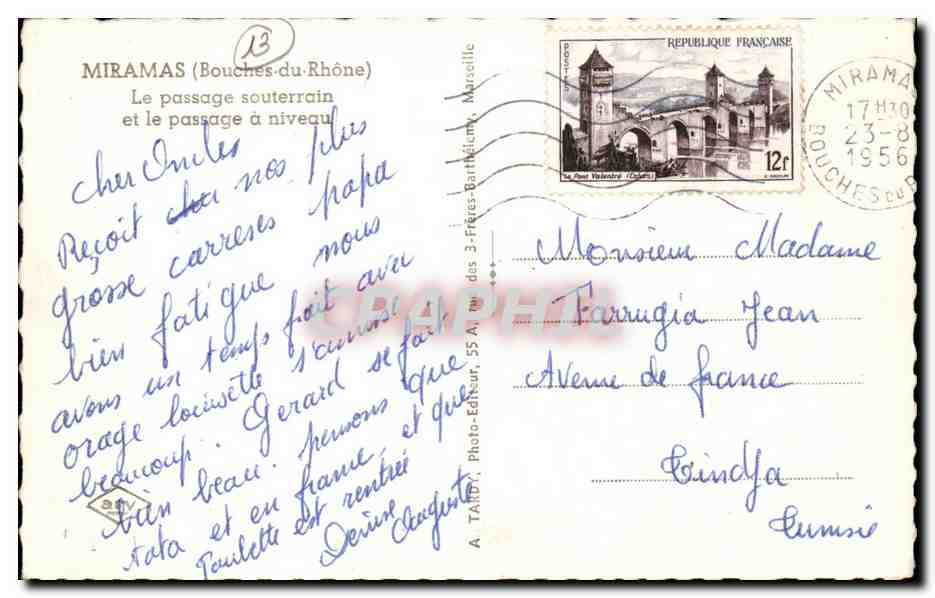 13
MIRAMAS (Bouches-du-Rhône)
Le passage souterrain
et le passage à niveau
Cher Oncles
Reçoit nos plus
grosse carreses papa
bien fatigue nous
avons un temps frait avec
orage louisette s'amuse
beaucoup. Gerard se fait
bien beau. pensons que
tata et en france, et que
Paulette est rentrée
Denise Auguste
asv
A TARDY, Photo-Editeur, 55 A, rue des 3-Frères-Barthélemy, Marseille
POSTES
REPUBLIQUE FRANÇAISE
Le Pont Valentré (Cahors)
12f
MIRAMAS
17H30
23-8
1956
BOUCHES DU R
Monsieur Madame
Farrugia Jean
Avenue de france
Tindja
Tunisie
CPAPHIL